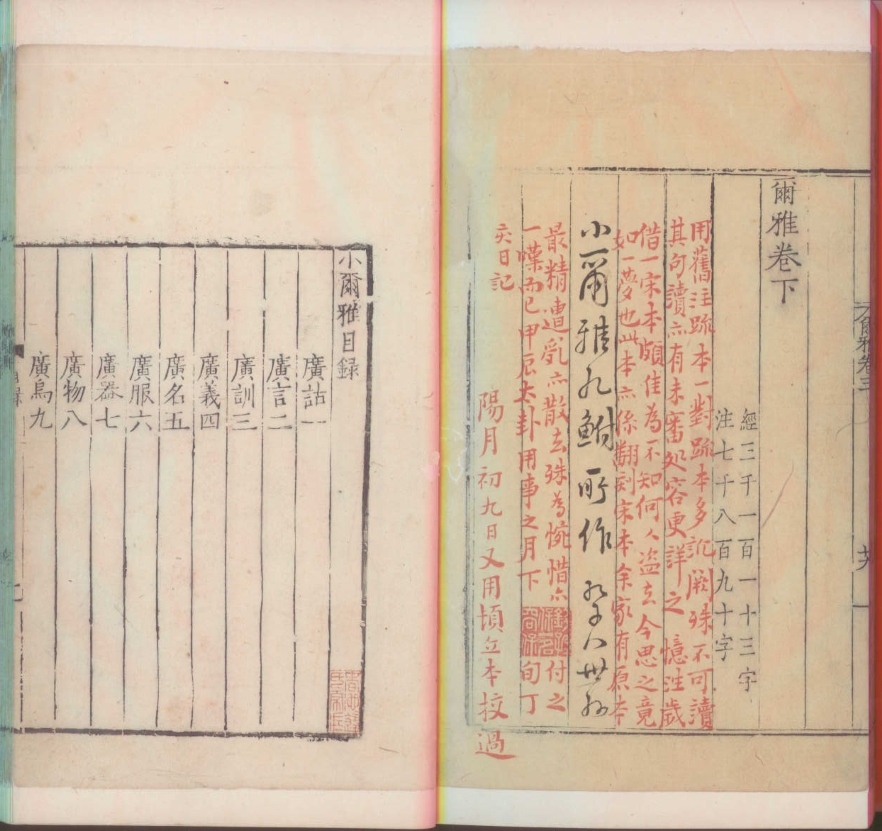 爾雅卷下
經三千一百一十三字
注七千八百九十字
用舊注疏本一對疏本多訛闕殊不可讀
其句讀亦有未審処容更詳之憶往歲
借一宋本頗佳為不知何人盗去今思之竟
如一夢也此本亦係翻刻宋本余家有原本
小爾雅孔鮒所作
最精遭乱亦散去殊為惋惜亦付之
一嘆而已甲辰夬卦用事之月下旬丁
亥日記
陽月初九日又用頃立本挍過
小爾雅目録
廣詁一
廣言二
廣訓三
廣義四
廣名五
廣服六
廣器七
廣物八
廣鳥九